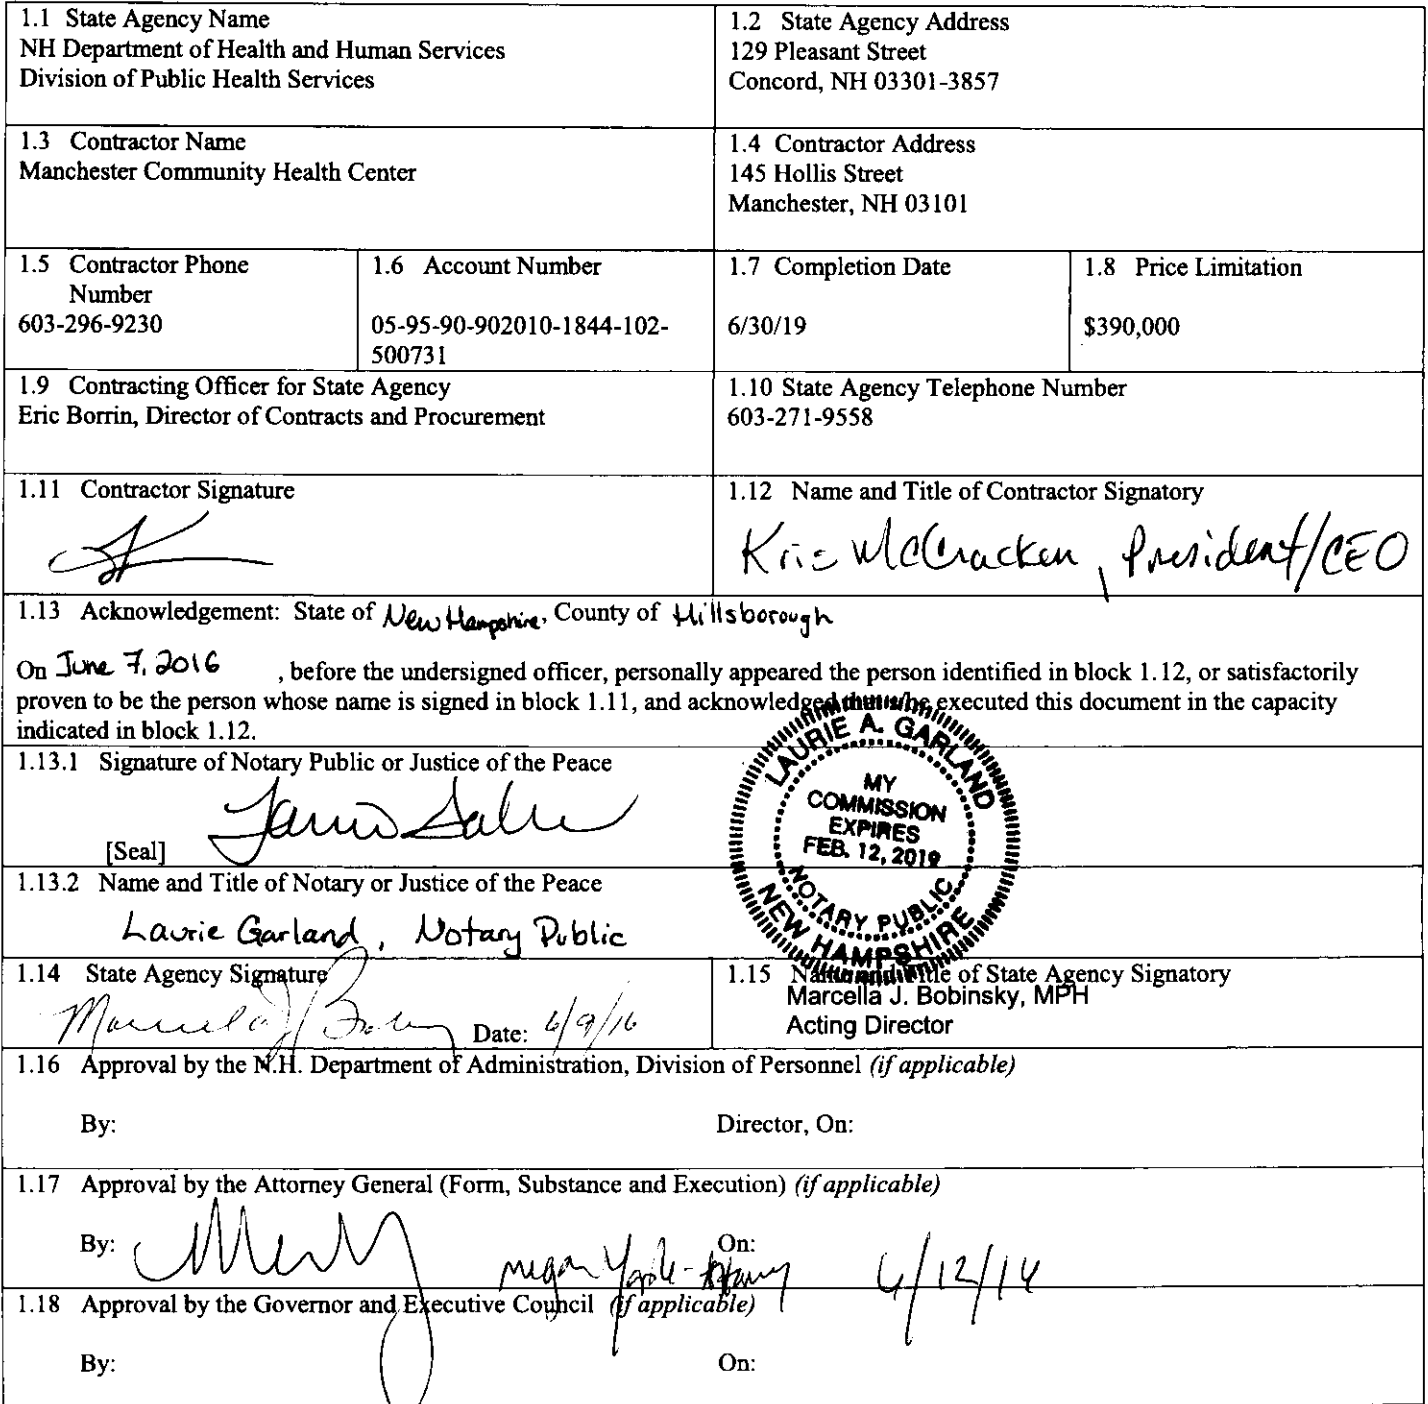 1.1 State Agency Name
NH Department of Health and Human Services
Division of Public Health Services
1.2 State Agency Address
129 Pleasant Street
Concord, NH 03301-3857
1.3 Contractor Name
Manchester Community Health Center
1.4 Contractor Address
145 Hollis Street
Manchester, NH 03101
1.5 Contractor Phone
Number
603-296-9230
1.6 Account Number
05-95-90-902010-1844-102-
500731
1.7 Completion Date
6/30/19
1.8 Price Limitation
$390,000
1.9 Contracting Officer for State Agency
Eric Borrin, Director of Contracts and Procurement
1.10 State Agency Telephone Number
603-271-9558
1.11 Contractor Signature
1.12 Name and Title of Contractor Signatory
Kris McCracken, President/CEO
1.13 Acknowledgement: State of New Hampshire, County of Hillsborough
On June 7, 2016 , before the undersigned officer, personally appeared the person identified in block 1.12, or satisfactorily
proven to be the person whose name is signed in block 1.11, and acknowledged that s/he executed this document in the capacity
indicated in block 1.12.
1.13.1 Signature of Notary Public or Justice of the Peace
[Seal]
LAURIE A. GARLAND
MY
COMMISSION
EXPIRES
FEB. 12, 2019
NOTARY PUBLIC
NEW HAMPSHIRE
1.13.2 Name and Title of Notary or Justice of the Peace
Laurie Garland, Notary Public
1.14 State Agency Signature
Date: 6/9/16
1.15 Name and Title of State Agency Signatory
Marcella J. Bobinsky, MPH
Acting Director
1.16 Approval by the N.H. Department of Administration, Division of Personnel (if applicable)
By:
Director, On:
1.17 Approval by the Attorney General (Form, Substance and Execution) (if applicable)
By:
On:
Megan
1.18 Approval by the Governor and Executive Council (if applicable)
By:
On: